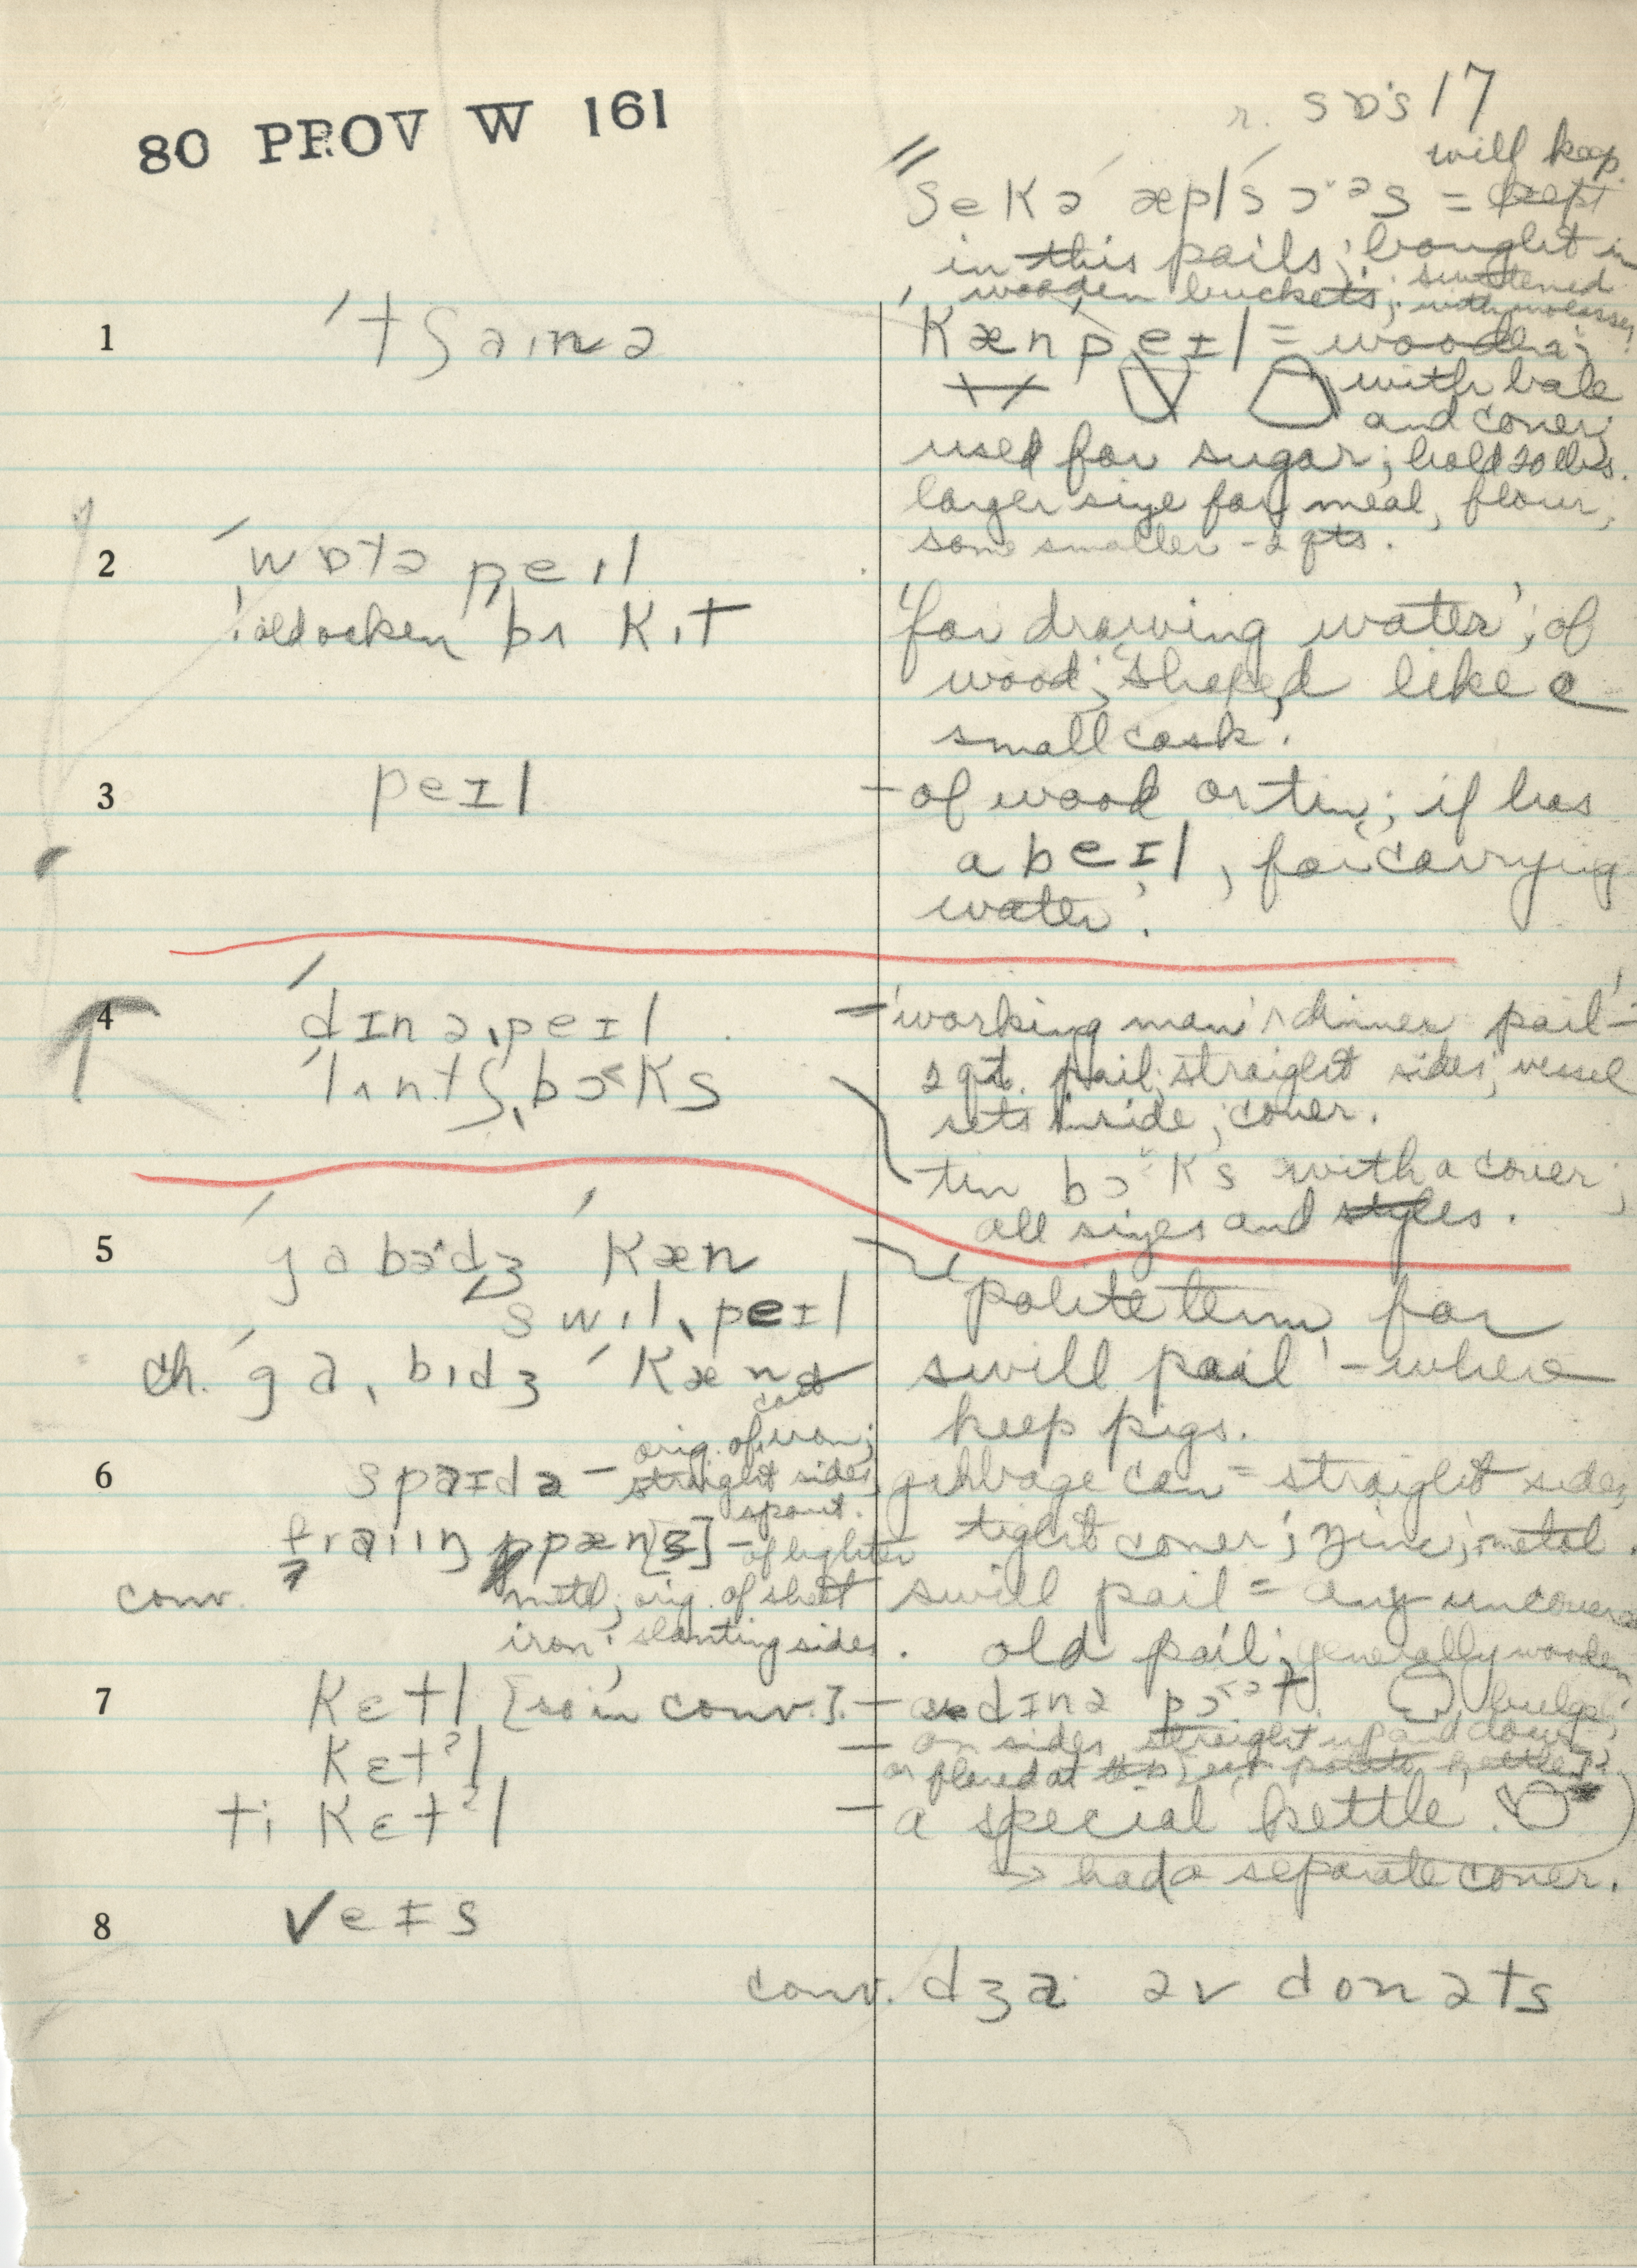 80 PROV W 161
r. sɒ's 17
will keep
ʃekə æplsɔˇəs = kept
in this pails; bought in
wooden buckets; sweetened
with molasses
1 ˈtʃaɪnə
ˈKænpeɪl = wooden;
with bale
and cover;
used for sugar; hold 20 lbs.
larger size for meal, flour;
some smaller - 2 qts.
2 ˈwɒtə peɪl
! old oaken bʌkɪt
'for drawing water'; of
wood; 'shaped like a
small cask'.
3 peɪl
- of wood or tin; if has
a beɪl, for 'carrying
water'.
4 ˈdɪnəˌpeɪl
- 'working man's dinner pail' -
ˈlʌntʃˌbɔ˂ks
2 qt. pail; straight sides; vessel
sets inside; cover.
tin bɔ˂ks with a cover;
all sizes and styles.
5 ˈgabədʒ ˈkæn
swɪlˌpeɪl
'polite term for
ch. ˈgaˌbɪdʒ ˈkæn
swill pail' - where
keep pigs.
6 spaɪdə - orig. of cast iron;
straight sides,
spout.
garbage can = straight sides,
tight cover; zinc; metal.
fraiɪŋ pæn[z] - of lighter
conv. metl; orig. of sheet
iron; slanting sides.
swill pail = any uncovered
old pail; generally wooden
7 kɛtl [so in conv.] - dɪnə pɔ˂ət. bulge;
kɛtˀl - or sides straight up and down
or flared at
ti kɛtˀl - a special kettle.
→ had a separate cover.
8 veɪs
conv. dʒa əv donəts